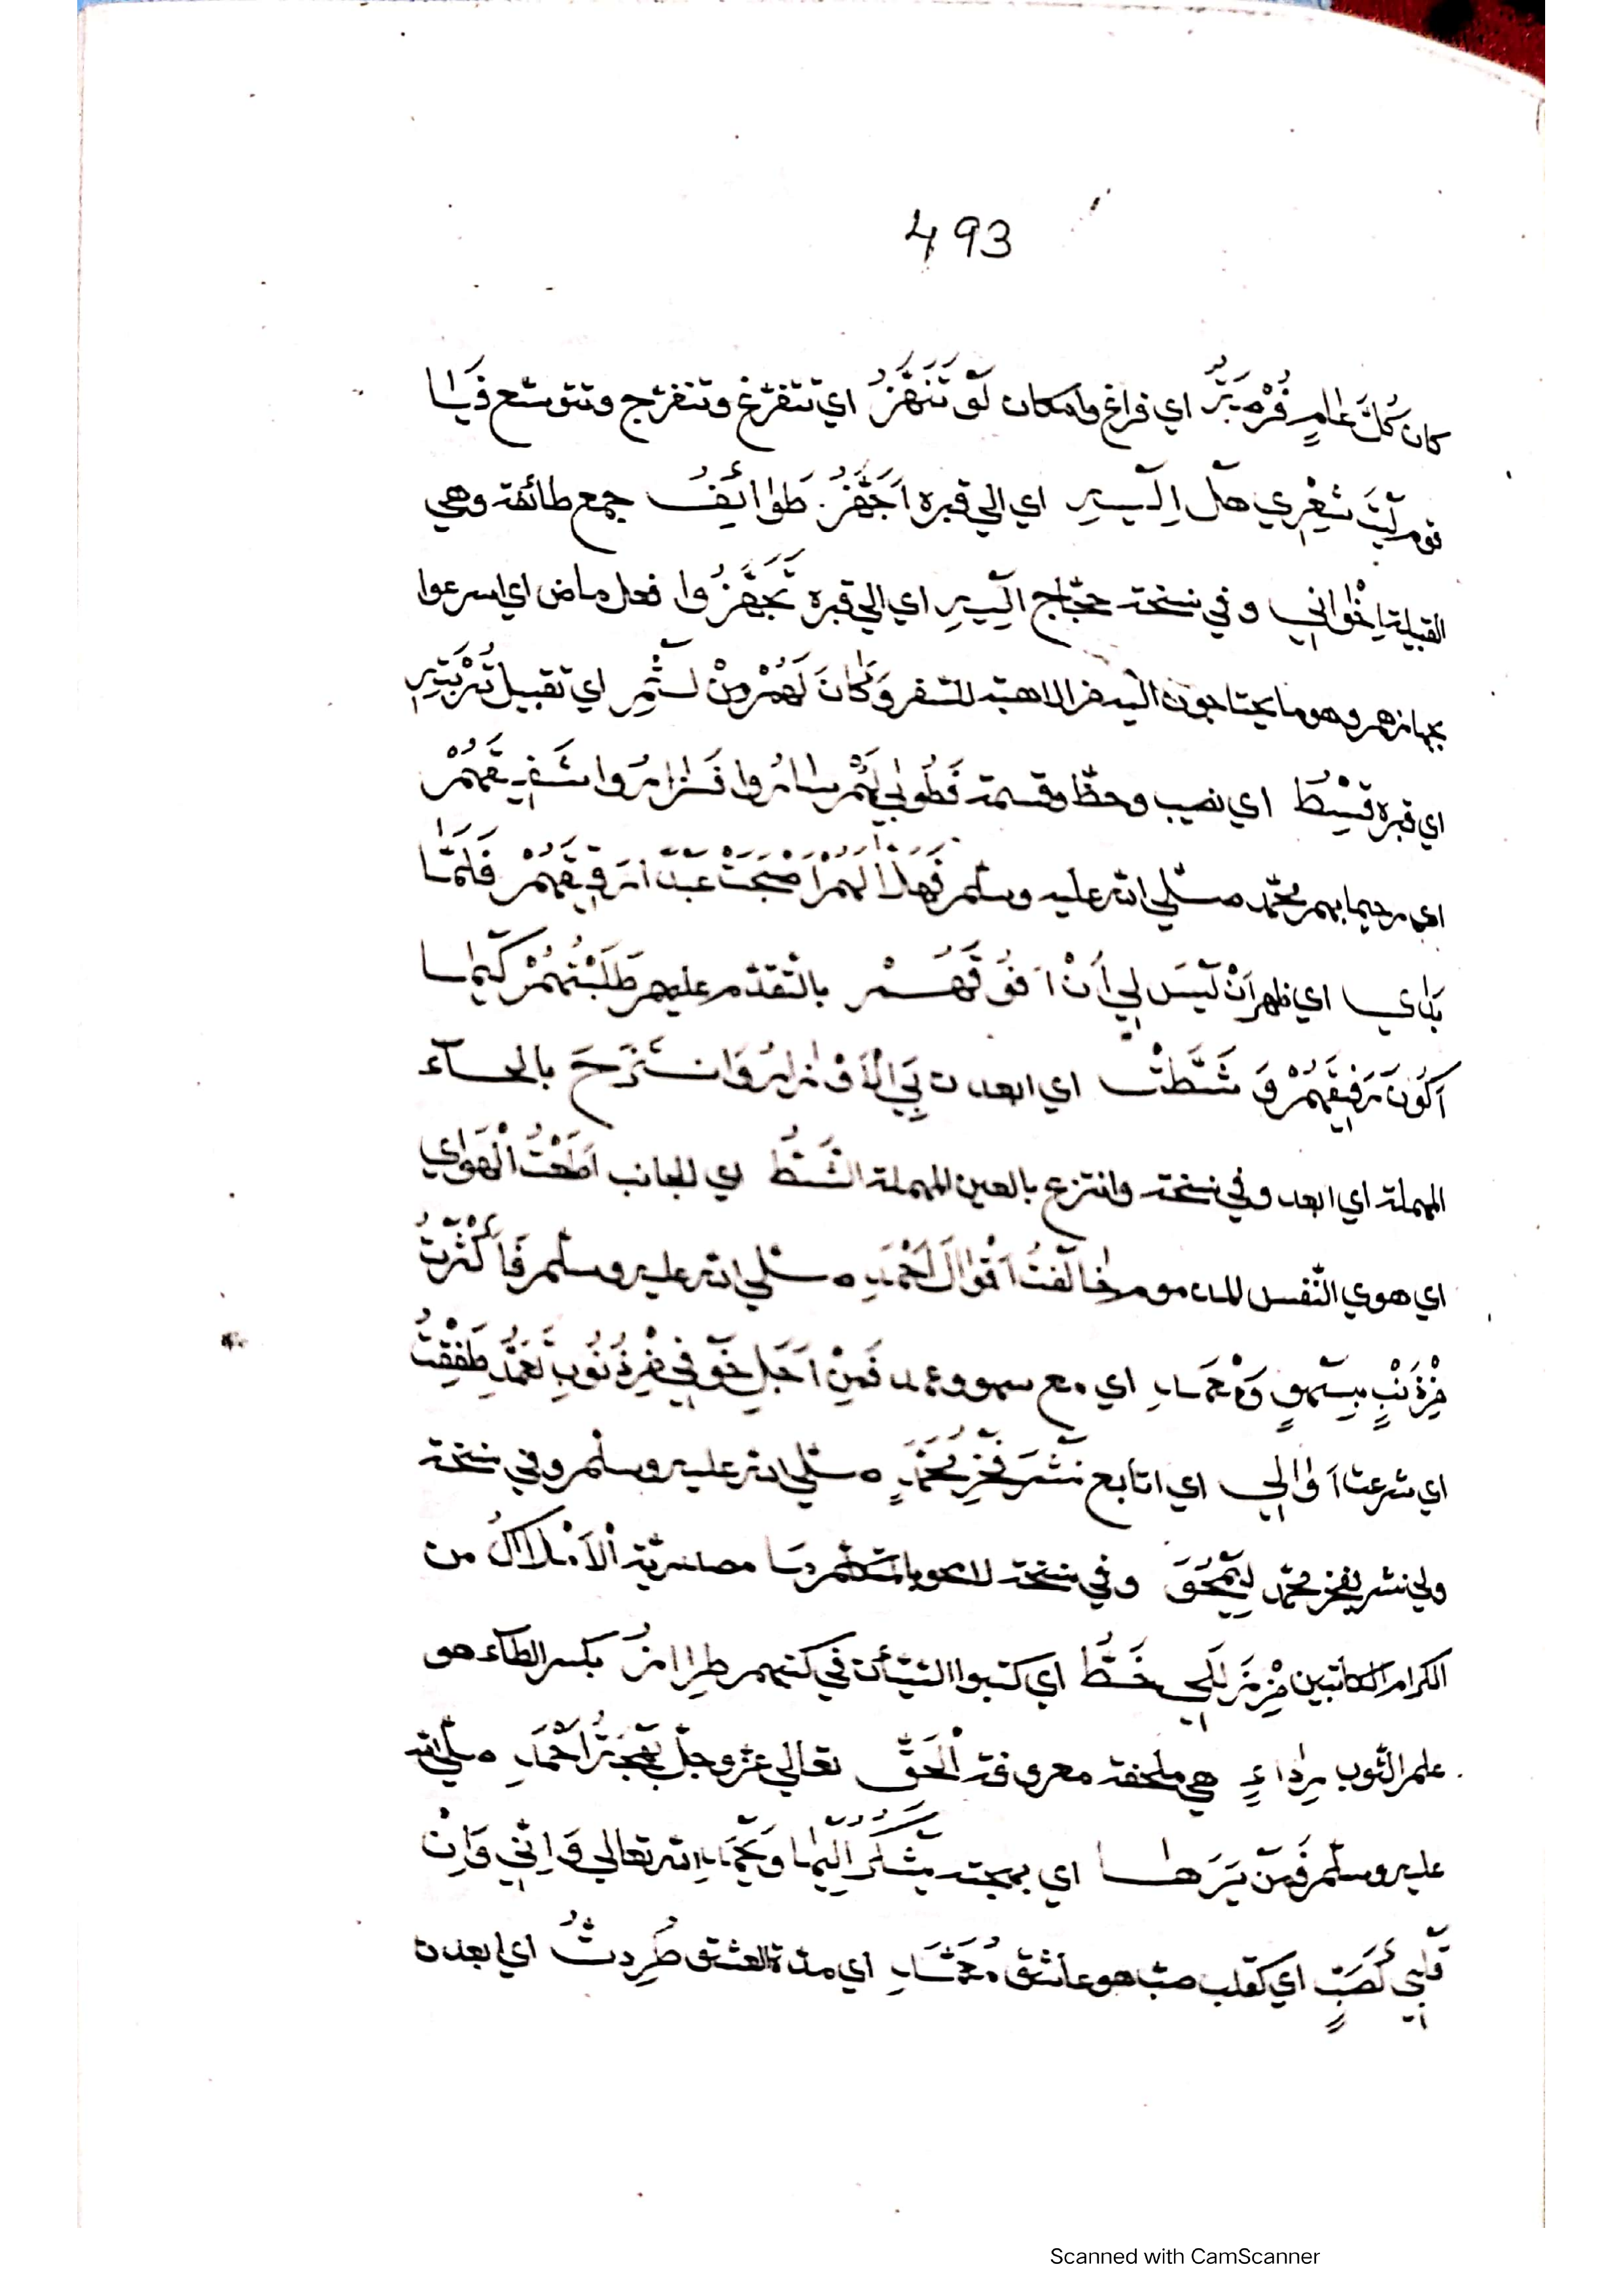 493
كان كُلَّ عَالِمٍ فُرْصَةً اي فراغ وامكان لَوْ تَنَهَّزُ اي تتفرّغ وتنفرّج وتتوسّع فَيَا
قوم لَيْتَ شِعْرِي هَلْ اِلَيْهِ اي الي قبره اَجَهَّزُ. طَوَائِفُ جمع طائفة وهي
القبيلة اِخْوَانِي وفي نسخة حجّاج اِلَيْهِ اي الي قبره تَجَهَّزُوا فعل ماض اي اسرعوا
بجهازهم وهو ما يحتاجون اليه من الاهبة للسّفر وَكَانَ لَهُمْ مِنْ لَثْمِ اي تقبيل تُرْبَتِهِ
اي قبره قِسْطٌ اي نصيب وحظّ وقسمة فَطُوبٰي لَهُمْ سَارُوا فَزَارُوا شَفِيقَهُمْ
اي رحيما بهم محمّد صلّي الله عليه وسلّم فَهَا اَنَا لَهُمْ اَصْبَحْتُ عَبْدًا رَقِيقَهُمْ فَلَمَّا
بَدَا لِي اي ظهر اَنْ لَيْسَ لِي اَنْ اَفُوقَهُمْ بالتّقدّم عليهم طَلَبْتُهُمْ كَيْمَا
اَكُونَ رَفِيقَهُمْ وَشَطَّتْ اي ابعدت بِيَ الْاَوْزَارُ وَانْتَزَحَ بالحآء
المهملة اي ابعد وفي نسخة وانتزع بالعين المهملة الشَّطُّ اي الجانب اَطَعْتُ الْهَوٰي
اي هوي النّفس المذموم وخَالَفْتُ اَقْوَالَ اَحْمَدِ صلّي الله عليه وسلّم فَاَكْثَرْتُ
مِنْ ذَنْبٍ بِسَهْوٍ وَعَمْدِ اي مع سهو وعمد فَمِنْ اَجَلِ خَوْفِي مِنْ ذُنُوبِ تَعَمُّدِ طَفِقْتُ
اي شرعت اُوَالِي اي اتابع نَشْرَ فَخْرِ مُحَمَّدٍ صلّي الله عليه وسلّم وفي نسخة
ولي نشر بفخر محمّد لِيَمْحُوَ وفي نسخة لامحو مَا مصدريّة الْاَمْلَاكُ من
الكرام الكاتبين مِنْ زَلَلِي خَطُّوا اي كتبوا السّيّئات في كتبهم طِرَازُ بكسر الطآء هو
علم الثّوب رِدَاءٍ هي ملحفة معروفة الْحَقِّ تعالي عزّ وجلّ بَهْجَةُ اَحْمَدِ صلّي الله
عليه وسلّم فَمَنْ يَرَهَا اي بهجته يَشْكُرْ اِلٰهًا وَيَحْمَدِ الله تعالي وَاِنِّي وَاِنْ
قَلْبِي كَصَبٍّ اي كقلب صبّ هو عاشق مُعَمَّدِ اي مدّة العشق طُرِدْتُ اي ابعدت
Scanned with CamScanner